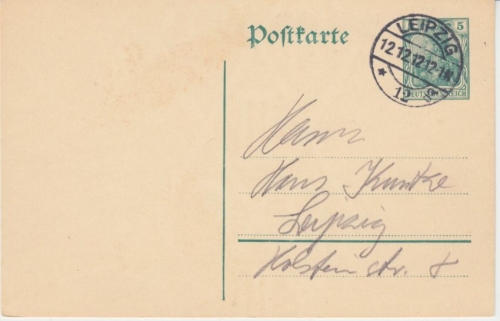 Postkarte
5
LEIPZIG
12.12.12.12-1N.
* 12
DEUTSCHES REICH
Herrn
Hans Kuntze
Leipzig
Holsteinstr. 8